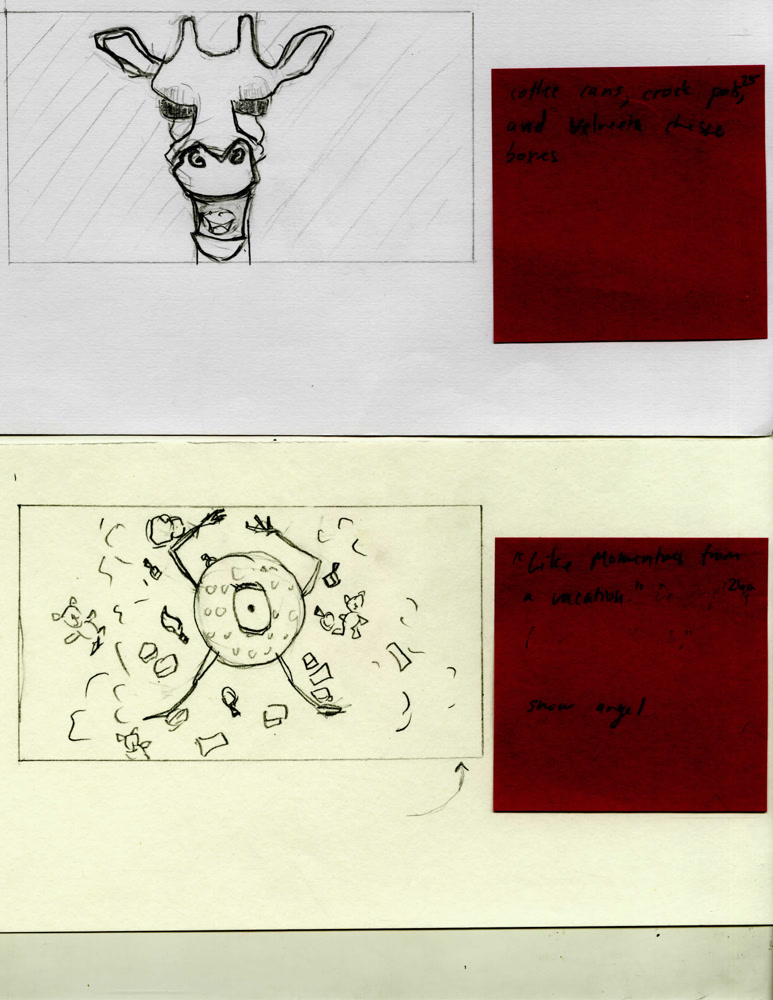 coffee cans, crock pots, 25
and Velveeta cheese
boxes
"Like Momentos from
a vacation."
snow angel